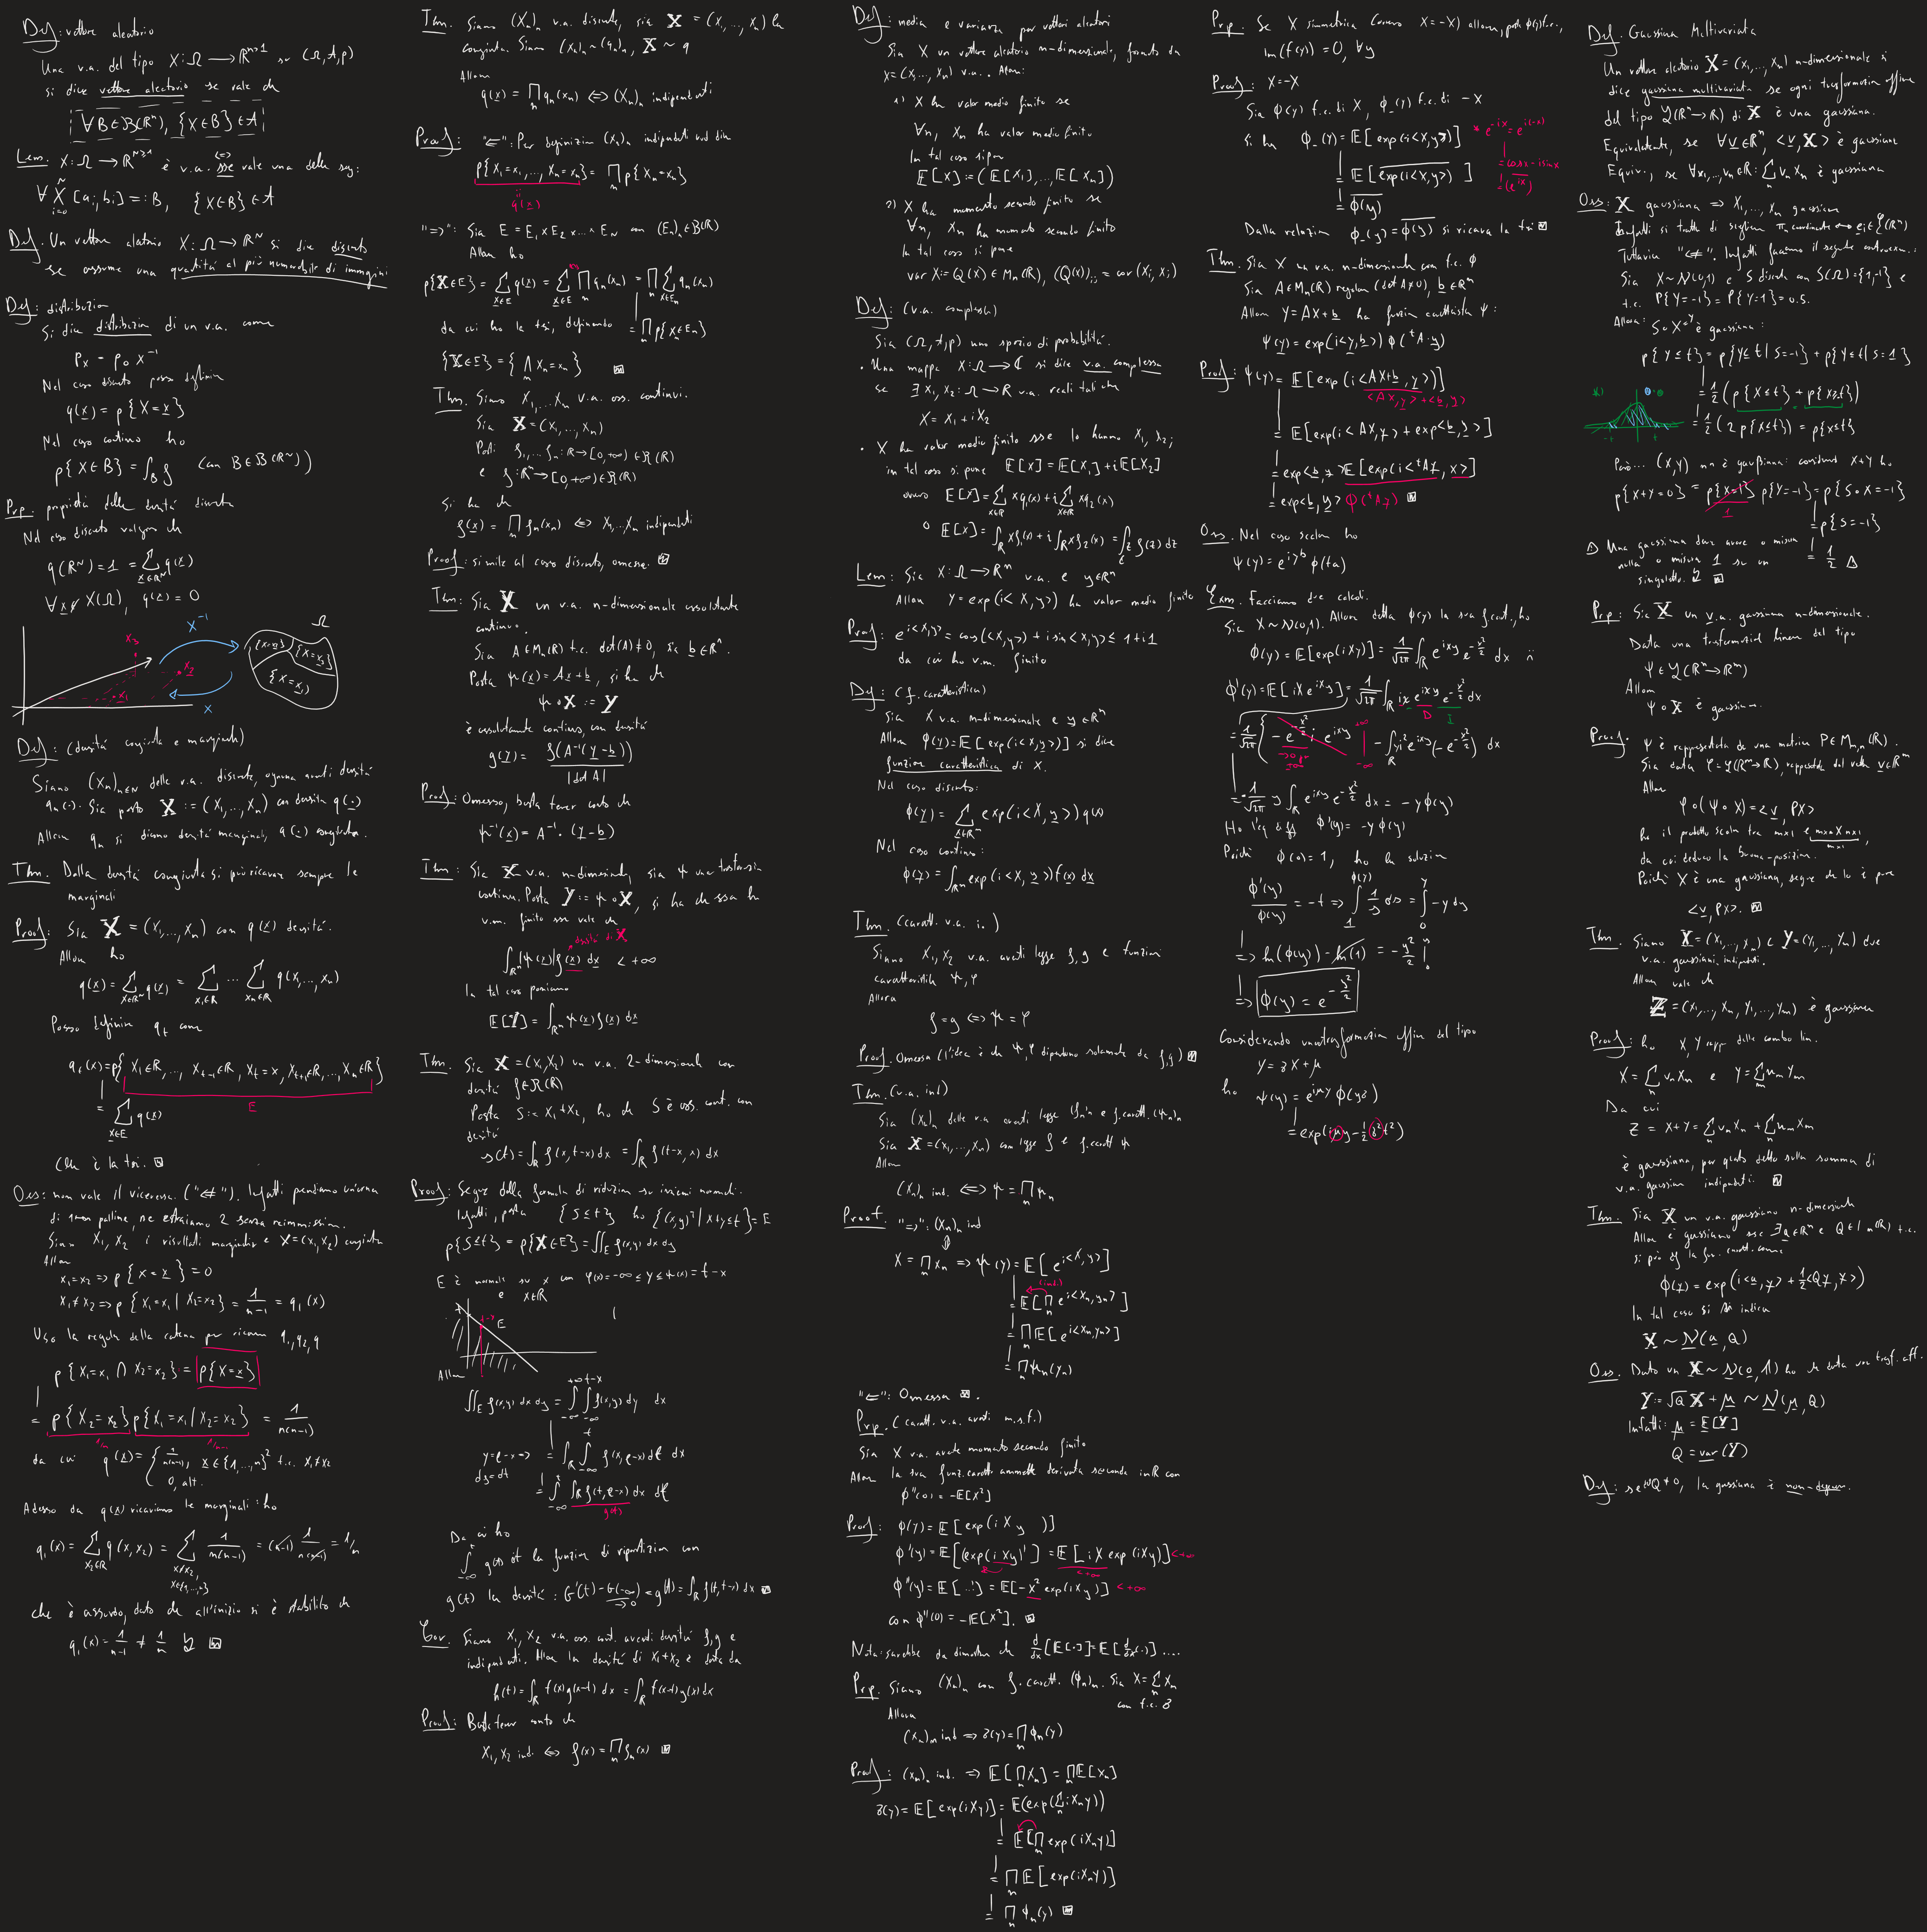 Def: vettore aleatorio
Una v.a. del tipo X: Ω → ℝ^{n>1} su (Ω, A, p)
si dice vettore aleatorio se vale che
∀B∈B(ℝⁿ), {X∈B}∈A
Lem. X: Ω → ℝ^{N≥1} è v.a. sse vale una delle seg:
∀ X_{i=0}^{N} [a_i, b_i] =: B, {X∈B}∈A
Def. Un vettore alatorio X: Ω → ℝᴺ si dice discreto
se assume una quantità al più numerabile di immagini
Def: distribuzione
Si dice distribuzione di un v.a. come
P_X = p∘X⁻¹
Nel caso discreto posso definire
q(x) = p{X=x}
Nel caso continuo ho
p{X∈B} = ∫_B f (con B∈B(ℝᴺ))
Prp. proprietà delle densità discrete
Nel caso discreto valgono che
q(ℝᴺ) = 1 = Σ_{x∈ℝᴺ} q(x)
∀x∉X(Ω), q(x) = 0
X⁻¹
Ω
x₃
{X=x₂} {X=x₃}
x₂
{X=x₁}
x₁
X
Def: (densità congiunta e marginale)
Siano (X_n)_{n∈N} delle v.a. discrete, ognuna aventi densità
q_n(·). Sia posto X := (X₁,...,X_n) con densità q(·)
Allora q_n si dicono densità marginali, q(·) congiunta.
Thm. Dalla densità congiunta si può ricavare sempre le
marginali
Proof: Sia X = (X₁,...,X_n) con q(x) densità.
Allora ho
q(x) = Σ_{x∈ℝᴺ} q(x) = Σ_{x₁∈ℝ} ... Σ_{x_n∈ℝ} q(x₁,...,x_n)
Posso definire q_t come
q_t(x) = p{X₁∈ℝ,..., X_{t-1}∈ℝ, X_t = x, X_{t+1}∈ℝ,..., X_n∈ℝ}
E
= Σ_{x∈E} q(x)
Che è la tesi.
Oss: non vale il viceversa. ("⇍"). Infatti prendiamo un'urna
di n palline, ne estraiamo 2 senza reimmissione.
Siano X₁, X₂ i risultati marginali e X=(X₁,X₂) congiunta
Allora
x₁=x₂ ⇒ p{X=x} = 0
x₁≠x₂ ⇒ p{X₁=x₁ | X₂=x₂} = 1/(n-1) = q₁(x)
Uso la regola della catena per ricavare q₁, q₂, q
p{X₁=x₁ ∩ X₂=x₂} = p{X=x}
= p{X₂=x₂} p{X₁=x₁ | X₂=x₂} = 1/(n(n-1))
1/n 1/(n-1)
da cui q(x) = { 1/(n(n-1)), x∈{1,...,n}² t.c. x₁≠x₂
0, alt.
Adesso da q(x) ricaviamo le marginali: ho
q₁(x) = Σ_{x₂∈ℝ} q(x, x₂) = Σ_{x≠x₂, x∈{1,...,n}} 1/(n(n-1)) = (n-1) 1/(n(n-1)) = 1/n
che è assurdo, dato che all'inizio si è stabilito che
q₁(x) = 1/(n-1) ≠ 1/n
Thm. Siano (X_n)_n v.a. discrete, sia X = (X₁,...,X_n) la
congiunta. Siano (X_n)_n ~ (q_n)_n, X ~ q
Allora
q(x) = ∏_n q_n(x_n) ⇔ (X_n)_n indipendenti
Proof: "⇐": Per definizione (X_n)_n indipendenti vuol dire
p{X₁=x₁,..., X_n=x_n} = ∏_n p{X_n=x_n}
q(x)
"⇒": Sia E = E₁×E₂×...×E_N con (E_n)_n∈B(ℝ)
Allora ho
p{X∈E} = Σ_{x∈E} q(x) = Σ_{x∈E} ∏_n q_n(x_n) = ∏_n Σ_{x∈E_n} q_n(x_n)
da cui ho la tesi, definendo = ∏_n p{X∈E_n}
{X∈E} = {⋀_n X_n = x_n}
Thm. Siano X₁,...X_n v.a. ass. continui.
Sia X = (X₁,...,X_n)
Posti f₁,...f_n: ℝ→[0,+∞)∈R(ℝ)
e f: ℝⁿ→[0,+∞)∈R(ℝ)
Si ha che
f(x) = ∏_n f_n(x_n) ⇔ X₁,...X_n indipendenti
Proof: simile al caso discreto, omessa.
Thm: Sia X un v.a. n-dimensionale assolutamente
continuo.
Sia A∈M_n(ℝ) t.c. det(A)≠0, sia b∈ℝⁿ.
Posta ψ(x) = Ax+b, si ha che
ψ∘X := Y
è assolutamente continuo, con densità
g(y) = f(A⁻¹(y-b)) / |det A|
Proof: Omesso, basta tener conto che
ψ⁻¹(x) = A⁻¹·(y-b)
Thm: Sia X v.a. n-dimensionale, sia ψ una trasformazione
continua. Posta Y := ψ∘X, si ha che essa ha
v.m. finito sse vale che
densità di X
∫_{ℝⁿ} |ψ(x)| f(x) dx < +∞
In tal caso poniamo
E[Y] = ∫_{ℝⁿ} ψ(x) f(x) dx
Thm. Sia X=(X₁,X₂) un v.a. 2-dimensionale con
densità f∈R(ℝ)
Posta S := X₁+X₂, ho che S è ass. cont. con
densità
s(t) = ∫_ℝ f(x, t-x) dx = ∫_ℝ f(t-x, x) dx
Proof: Segue dalla formula di riduzione su insiemi normali.
Infatti, posta {S≤t} ho {(x,y)² | x+y≤t} = E
p{S≤t} = p{X∈E} = ∬_E f(x,y) dx dy
E è normale su x con φ(x)=-∞ ≤ y ≤ ψ(x) = t-x
e x∈ℝ
t-x E
Allora
∬_E f(x,y) dx dy = ∫_{-∞}^{+∞} ∫_{-∞}^{t-x} f(x,y) dy dx
y=t-x ⇒ = ∫_ℝ ∫_{-∞}^{t} f(x, t-x) dt dx
dy=dt
= ∫_{-∞}^{t} ∫_ℝ f(t, t-x) dx dt
g(t)
Da cui ho
∫_{-∞}^{t} g(t) dt la funzione di ripartizione con
g(t) la densità: G'(t) - G(-∞) = g(t) = ∫_ℝ f(t, t-x) dx
→0
Cor. Siano X₁, X₂ v.a. ass. cont. aventi densità f, g e
indipendenti. Allora la densità di X₁+X₂ è data da
h(t) = ∫_ℝ f(x)g(x-t) dx = ∫_ℝ f(x-t)g(x) dx
Proof: Basta tener conto che
X₁, X₂ ind. ⇔ f(x) = ∏_n f_n(x)
Def: media e varianza per vettori aleatori
Sia X un vettore aleatorio n-dimensionale, formato da
X=(X₁,...,X_n) v.a.. Allora:
1) X ha valor medio finito se
∀n, X_n ha valor medio finito
In tal caso si pone
E[X] := (E[X₁],...,E[X_n])
2) X ha momento secondo finito se
∀n, X_n ha momento secondo finito
In tal caso si pone
var X := Q(X)∈M_n(ℝ), (Q(X))_{ij} = cov(X_i, X_j)
Def: (v.a. complessa)
Sia (Ω, A, p) uno spazio di probabilità.
• Una mappa X: Ω→ℂ si dice v.a. complessa
se ∃X₁, X₂: Ω→ℝ v.a. reali tali che
X = X₁ + iX₂
• X ha valor medio finito sse lo hanno X₁, X₂;
in tal caso si pone E[X] = E[X₁] + iE[X₂]
ovvero E[X] = Σ_{x∈ℝ} xq₁(x) + i Σ_{x∈ℝ} xq₂(x)
o E[X] = ∫_ℝ xf₁(x) + i∫_ℝ xf₂(x) = ∫_ℂ f(z) dz
Lem: Sia X: Ω→ℝⁿ v.a. e y∈ℝⁿ
Allora Y = exp(i<X,y>) ha valor medio finito
Proof: e^{i<X,y>} = cos(<X,y>) + i sin<X,y> ≤ 1+i1
da cui ho v.m. finito
Def: (f. caratteristica)
Sia X v.a. n-dimensionale e y∈ℝⁿ
Allora φ(y) = E[exp(i<X,y>)] si dice
funzione caratteristica di X.
Nel caso discreto:
φ(y) = Σ_{x∈ℝⁿ} exp(i<X,y>) q(x)
Nel caso continuo:
φ(y) = ∫_{ℝⁿ} exp(i<X,y>) f(x) dx
Thm (caratt. v.a. i.)
Siano X₁, X₂ v.a. aventi legge f, g e funzioni
caratteristiche ψ, φ
Allora
f=g ⇔ ψ=φ
Proof. Omessa (l'idea è che ψ, φ dipendono solamente da f, g)
Thm. (v.a. ind)
Sia (X_n)_n delle v.a. aventi legge (f_n)_n e f. caratt. (ψ_n)_n
Sia X=(X₁,...,X_n) con legge f e f. caratt ψ
Allora
(X_n)_n ind. ⇔ ψ = ∏_n ψ_n
Proof. "⇒": (X_n)_n ind
⇕
X = ∏_n X_n ⇒ ψ(y) = E[e^{i<X,y>}]
(ind.)
= E[∏_n e^{i<X_n,y_n>}]
= ∏_n E[e^{i<X_n,y_n>}]
= ∏_n ψ_n(y_n)
"⇐": Omessa.
Prp. (caratt. v.a. aventi m.s.f.)
Sia X v.a. avente momento secondo finito
Allora la sua funz. caratt. ammette derivata seconda in ℝ con
φ''(0) = -E[X²]
Proof: φ(y) = E[exp(iXy)]
φ'(y) = E[(exp(iXy))'] = E[iX exp(iXy)] <+∞
φ''(y) = E[...'] = E[-X² exp(iXy)] <+∞
con φ''(0) = -E[X²].
Nota: sarebbe da dimostrare che d/dx[E[·]] = E[d/dx(·)]....
Prp. Siano (X_n)_n con f. caratt. (φ_n)_n. Sia X = Σ_n X_n
con f.c. z
Allora
(X_n)_n ind ⇒ z(y) = ∏_n φ_n(y)
Proof: (X_n)_n ind. ⇒ E[∏_n X_n] = ∏_n E[X_n]
z(y) = E[exp(iXy)] = E(exp(Σ_n iX_n y))
= E[∏_n exp(iX_n y)]
= ∏_n E[exp(iX_n y)]
= ∏_n φ_n(y)
Prp. Se X simmetrica (ovvero X=-X) allora, posta φ(y) f.c.,
Im(f(y)) = 0, ∀y
Proof: X=-X
Sia φ(y) f.c. di X, φ₋(y) f.c. di -X
Si ha φ₋(y) = E[exp(i<X,y>)]
* e^{-ix} = e^{i(-x)}
= cosx - isinx
= (e^{ix})
= E[exp(i<X,y>)]
= φ(y)
Dalla relazione φ₋(y) = φ(y) si ricava la tesi
Thm. Sia X un v.a. n-dimensionale con f.c. φ
Sia A∈M_n(ℝ) regolare (det A≠0), b∈ℝⁿ
Allora Y=AX+b ha funzione caratteristica ψ:
ψ(y) = exp(i<y,b>) φ(ᵗA·y)
Proof: ψ(y) = E[exp(i<AX+b, y>)]
<AX,y>+<b,y>
= E[exp(i<AX,y> + exp<b,y>]
= exp<b,y> E[exp(i<ᵗAy, x>]
= exp<b,y> φ(ᵗAy)
Oss. Nel caso scalare ho
ψ(y) = e^{iyb} φ(ta)
Exm. Facciamo due calcoli.
Sia X~N(0,1). Allora detta φ(y) la sua f. caratt., ho
φ(y) = E[exp(iXy)] = 1/√2π ∫_ℝ e^{ixy} e^{-x²/2} dx
φ'(y) = E[iXe^{iXy}] = 1/√2π ∫_ℝ ix e^{ixy} e^{-x²/2} dx
D I
= 1/√2π { -e^{-x²/2} i e^{ixy} |_{-∞}^{+∞} - ∫_ℝ yi² e^{ixy}(-e^{-x²/2}) dx
→0 per ±∞
= -1/√2π y ∫_ℝ e^{ixy} e^{-x²/2} dx = -yφ(y)
Ho l'eq diff φ'(y) = -yφ(y)
Poiché φ(0)=1, ho la soluzione
φ'(y)/φ(y) = -t ⇒ ∫_1^{φ(y)} 1/s ds = ∫_0^y -y dy
⇒ ln(φ(y)) - ln(1) = -y²/2 |_0^y
⇒ φ(y) = e^{-y²/2}
Considerando una trasformazione affine del tipo
Y = zX + μ
ho ψ(y) = e^{iμy} φ(yz)
= exp(iμy - ½z²t²)
Def. Gaussiana Multivariata
Un vettore aleatorio X = (X₁,...,X_n) n-dimensionale si
dice gaussiana multivariata se ogni trasformazione affine
del tipo L(ℝⁿ→ℝ) di X è una gaussiana.
Equivalentemente, se ∀v∈ℝⁿ, <v,X> è gaussiana
Equiv., se ∀v₁,...,v_n∈ℝ: Σ_n v_n X_n è gaussiana
Oss: X gaussiana ⇒ X₁,...,X_n gaussiane
Infatti si tratta di scegliere e_i∈L(ℝⁿ)
Tuttavia "⇍". Infatti facciamo il seguente controesempio:
Sia X~N(0,1) e S discreta con S(Ω)={1,-1} e
t.c. P{Y=-1} = P{Y=1} = 0.5.
Allora: S∘X=Y è gaussiana:
p{Y≤t} = p{Y≤t | S=-1} + p{Y≤t | S=1}
= ½(p{X≤t} + p{X≥t})
-t t
= ½(2p{X≤t}) = p{X≤t}
Però... (X,Y) non è gaussiana: considerando X+Y ho
p{X+Y=0} = p{X=1} p{Y=-1} = p{S∘X=-1}
1
= p{S=-1}
= ½
Una gaussiana deve avere o misura
nulla o misura 1 su un
singoletto.
Prp: Sia X un v.a. gaussiana n-dimensionale.
Data una trasformazione lineare del tipo
ψ∈L(ℝⁿ→ℝᵐ)
Allora
ψ∘X è gaussiana.
Proof. ψ è rappresentata da una matrice P∈M_{m,n}(ℝ).
Sia data φ=L(ℝᵐ→ℝ), rappresentata dal vettore v∈ℝᵐ
Allora
φ∘(ψ∘X) = <v, PX>
Ho il prodotto scalare tra m×1 e m×n X n×1,
m×1
da cui deduco la buona-posizione.
Poiché X è una gaussiana, segue che lo è pure
<v,PX>.
Thm. Siano X=(X₁,...,X_n) e Y=(Y₁,...,Y_m) due
v.a. gaussiani indipendenti.
Allora vale che
Z = (X₁,..., X_n, Y₁,...,Y_m) è gaussiana
Proof: ho X, Y rapp. delle combo lin.
X = Σ_n v_n X_n e Y = Σ_m u_m Y_m
Da cui
Z = X+Y = Σ_n v_n X_n + Σ_m u_m X_m
è gaussiana, per quanto detto sulla somma di
v.a. gaussiane indipendenti.
Thm. Sia X un v.a. gaussiano n-dimensionale
Allora è gaussiano sse ∃a∈ℝⁿ e Q∈M_n(ℝ) t.c.
si può def la fun. caratt. come
φ(y) = exp(i<a,y> + ½<Qy,y>)
In tal caso si indica
X ~ N(a, Q)
Oss. Dato un X~N(0, 1) ho che data una trasf. aff.
Y = √Q X + μ ~ N(μ, Q)
Infatti: μ = E[Y]
Q = var(Y)
Def: se det Q≠0, la gaussiana è non-degenere.